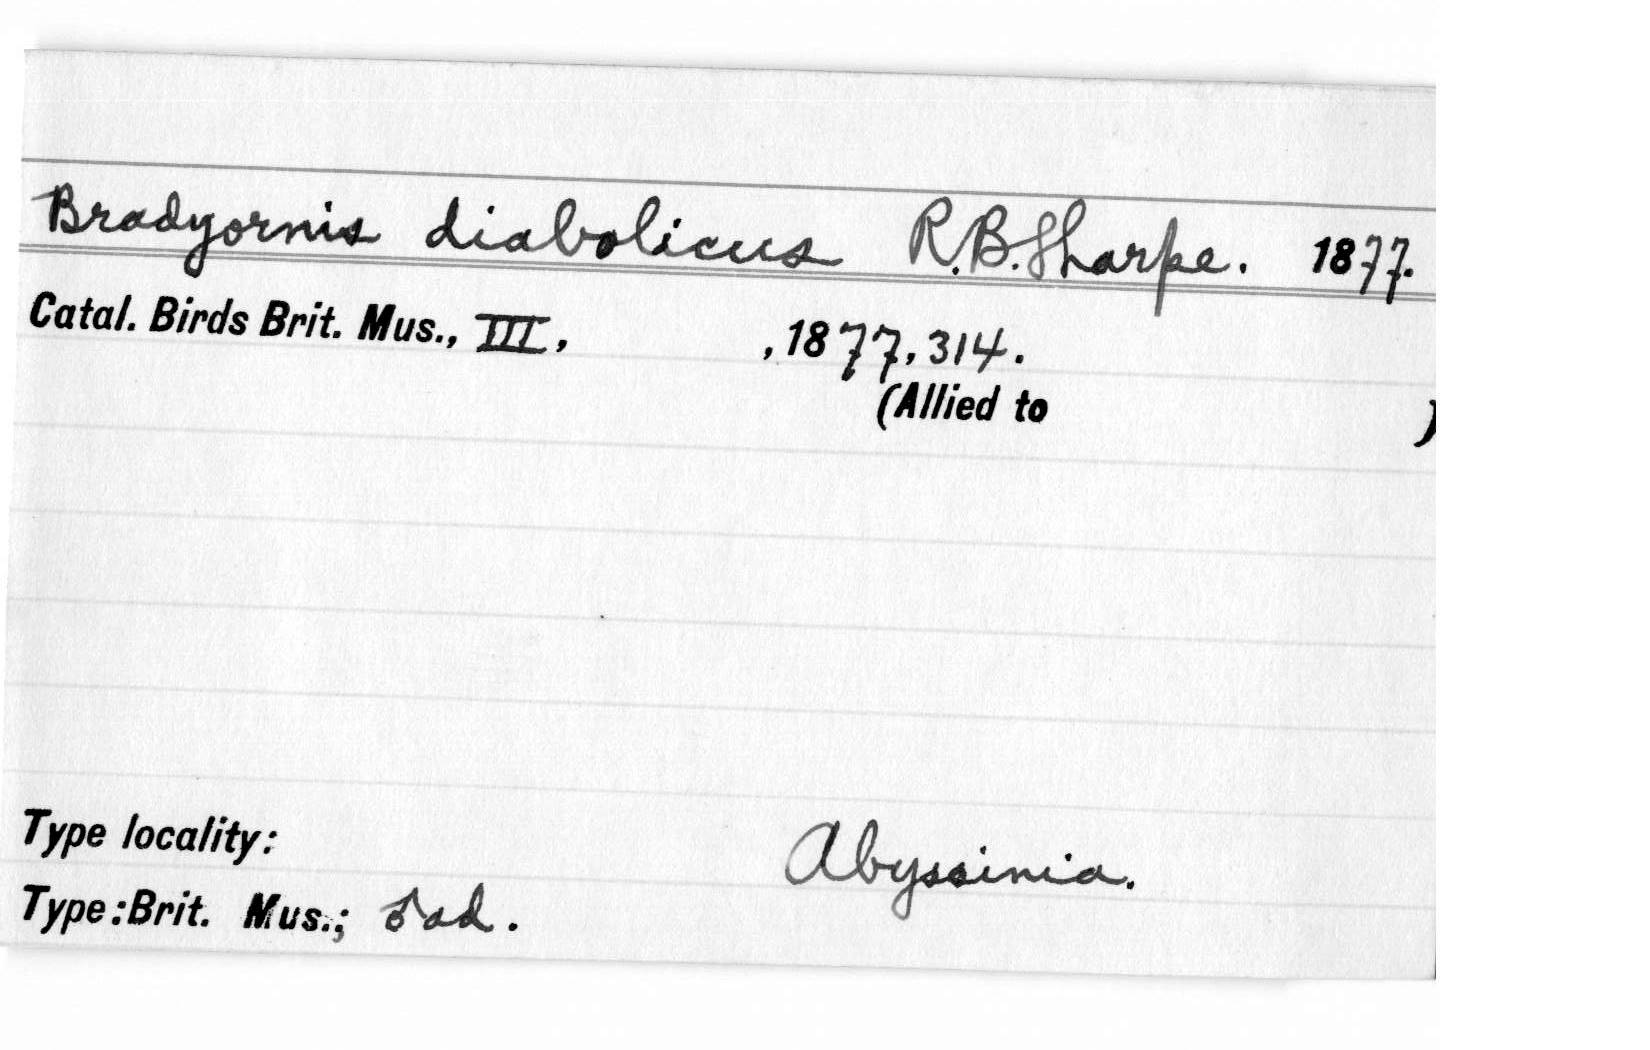 Bradyornis diabolicus R.B.Sharpe. 1877.
Catal. Birds Brit. Mus., III, , 1877, 314.
(Allied to )
Type locality: Abyssinia.
Type: Brit. Mus.; ♂ ad.